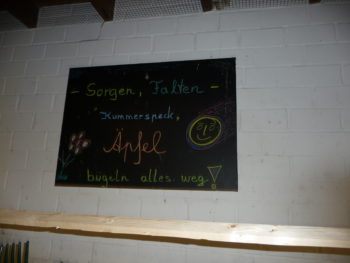 - Sorgen, Falten -
Kummerspeck,
Äpfel
bügeln alles weg!